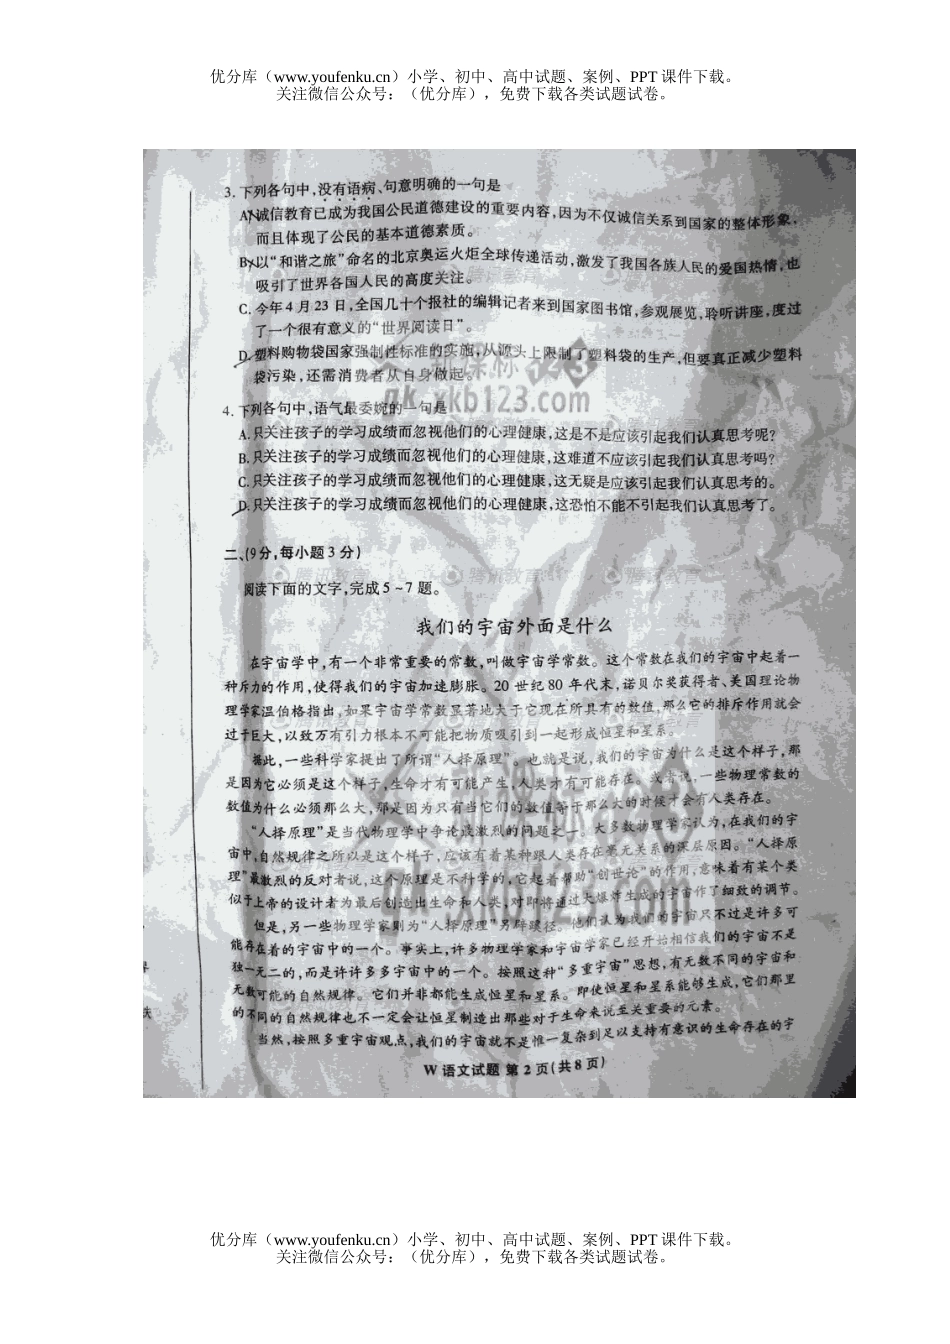 优分库（www.youfenku.cn）小学、初中、高中试题、案例、PPT 课件下载。
关注微信公众号：（优分库），免费下载各类试题试卷。
3. 下列各句中,没有语病、句意明确的一句是
A. 诚信教育已成为我国公民道德建设的重要内容,因为不仅诚信关系到国家的整体形象,
而且体现了公民的基本道德素质。
B. 以“和谐之旅”命名的北京奥运火炬全球传递活动,激发了我国各族人民的爱国热情,也
吸引了世界各国人民的高度关注。
C. 今年 4 月 23 日,全国几十个报社的编辑记者来到国家图书馆,参观展览,聆听讲座,度过
了一个很有意义的“世界阅读日”。
D. 塑料购物袋国家强制性标准的实施,从源头上限制了塑料袋的生产,但要真正减少塑料
袋污染,还需消费者从自身做起。
新课标123
gk.xkb123.com
4. 下列各句中,语气最委婉的一句是
A. 只关注孩子的学习成绩而忽视他们的心理健康,这是不是应该引起我们认真思考呢?
B. 只关注孩子的学习成绩而忽视他们的心理健康,这难道不应该引起我们认真思考吗?
C. 只关注孩子的学习成绩而忽视他们的心理健康,这无疑是应该引起我们认真思考的。
D. 只关注孩子的学习成绩而忽视他们的心理健康,这恐怕不能不引起我们认真思考了。
二、(9分,每小题 3 分)
腾讯教育 腾讯教育 腾讯教育
阅读下面的文字,完成 5 ~7 题。
我们的宇宙外面是什么
在宇宙学中,有一个非常重要的常数,叫做宇宙学常数。这个常数在我们的宇宙中起着一
种斥力的作用,使得我们的宇宙加速膨胀。20 世纪 80 年代末,诺贝尔奖获得者、美国理论物
理学家温伯格指出,如果宇宙学常数显著地大于它现在所具有的数值,那么它的排斥作用就会
过于巨大,以致万有引力根本不可能把物质吸引到一起形成恒星和星系。
据此,一些科学家提出了所谓“人择原理”。也就是说,我们的宇宙为什么是这个样子,那
是因为它必须是这个样子,生命才有可能产生,人类才有可能存在。或者说,一些物理常数的
数值为什么必须那么大,那是因为只有当它们的数值等于那么大的时候才会有人类存在。
“人择原理”是当代物理学中争论最激烈的问题之一。大多数物理学家认为,在我们的宇
宙中,自然规律之所以是这个样子,应该有着某种跟人类存在毫无关系的深层原因。“人择原
理”最激烈的反对者说,这个原理是不科学的,它起着帮助“创世论”的作用,意味着有某个类
似于上帝的设计者为最后创造出生命和人类,对即将通过大爆炸生成的宇宙作了细致的调节。
但是,另一些物理学家则为“人择原理”另辟蹊径。他们认为我们的宇宙只不过是许多可
能存在着的宇宙中的一个。事实上,许多物理学家和宇宙学家已经开始相信我们的宇宙不是
独一无二的,而是许许多多宇宙中的一个。按照这种“多重宇宙”思想,有无数不同的宇宙和
无数可能的自然规律。它们并非都能生成恒星和星系。即使恒星和星系能够生成,它们那里
的不同的自然规律也不一定会让恒星制造出那些对于生命来说至关重要的元素。
当然,按照多重宇宙观点,我们的宇宙就不是惟一复杂到足以支持有意识的生命存在的宇
W 语文试题 第 2 页(共 8 页)
优分库（www.youfenku.cn）小学、初中、高中试题、案例、PPT 课件下载。
关注微信公众号：（优分库），免费下载各类试题试卷。